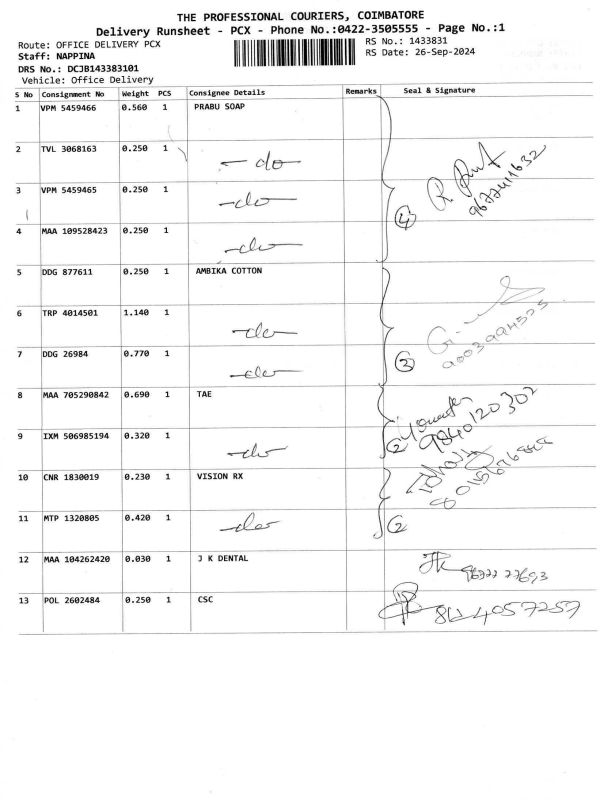 THE PROFESSIONAL COURIERS, COIMBATORE
Delivery Runsheet - PCX - Phone No.:0422-3505555 - Page No.:1
Route: OFFICE DELIVERY PCX RS No.: 1433831
Staff: NAPPINA RS Date: 26-Sep-2024
DRS No.: DCJB143383101
Vehicle: Office Delivery
S No Consignment No Weight PCS Consignee Details Remarks Seal & Signature
1 VPM 5459466 0.560 1 PRABU SOAP
2 TVL 3068163 0.250 1 -do-
3 VPM 5459465 0.250 1 -do-
4 MAA 109528423 0.250 1 -do- 4
5 DDG 877611 0.250 1 AMBIKA COTTON
6 TRP 4014501 1.140 1 -do-
7 DDG 26984 0.770 1 -do- 3
8 MAA 705290842 0.690 1 TAE
9840120302
9 IXM 506985194 0.320 1 -do- 2
10 CNR 1830019 0.230 1 VISION RX
11 MTP 1320805 0.420 1 -do- 2
12 MAA 104262420 0.030 1 J K DENTAL
13 POL 2602484 0.250 1 CSC